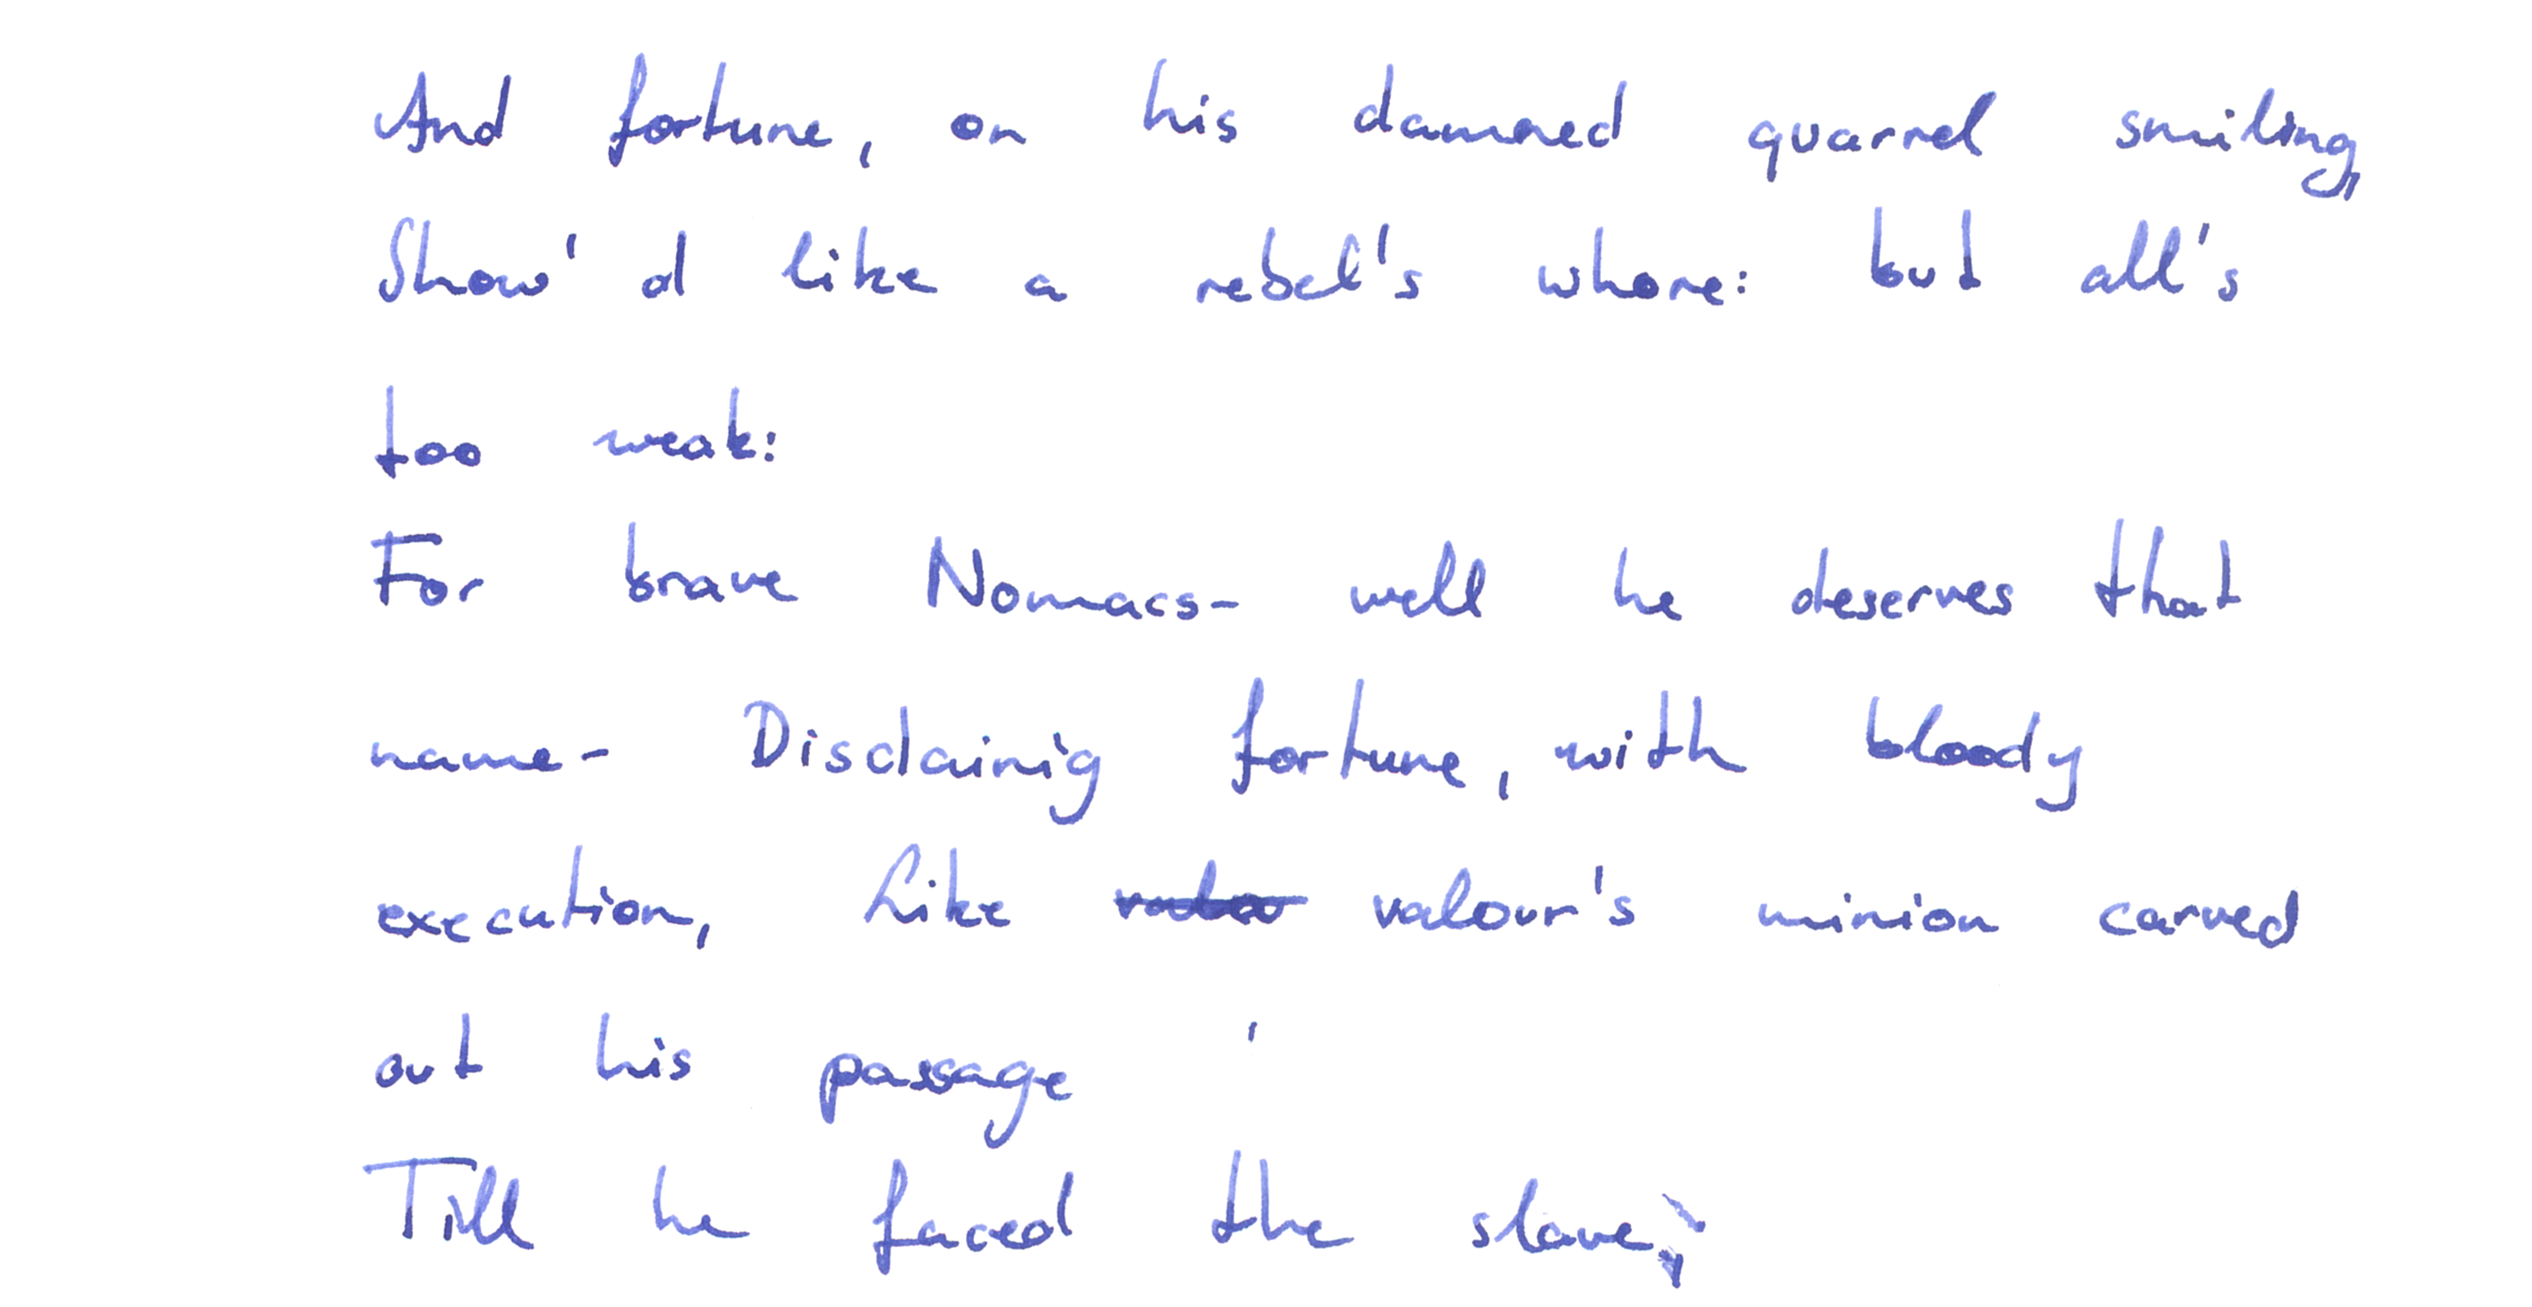 And fortune, on his damned quarrel smiling,
Show'd like a rebel's whore: but all's
too weak:
For brave Nomacs- well he deserves that
name- Disdainig fortune, with bloody
execution, Like valour's minion carved
out his passage
Till he faced the slave;